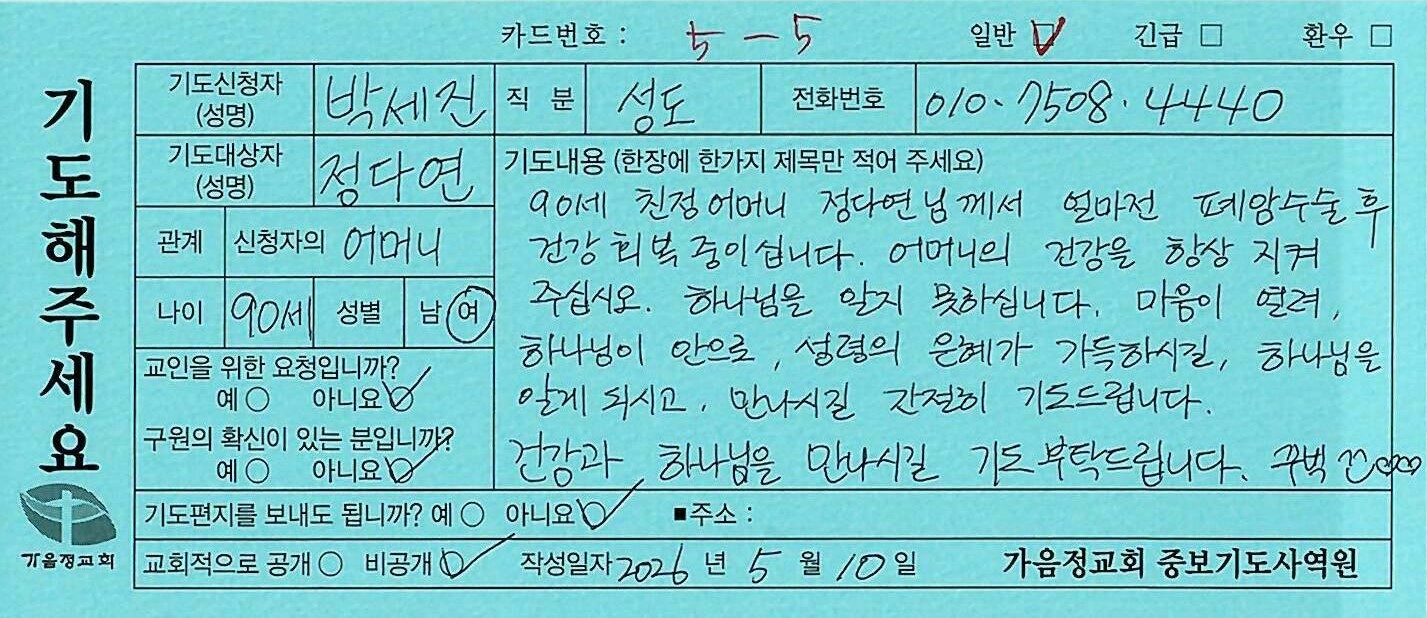 카드번호 : 5-5 일반 ☑ 긴급 □ 환우 □
기도해주세요
가음정교회
기도신청자 (성명) 박세진 직 분 성도 전화번호 010·7508·4440
기도대상자 (성명) 정다연
관계 신청자의 어머니
나이 90세 성별 남 여
교인을 위한 요청입니까?
예 ○ 아니요 ✓
구원의 확신이 있는 분입니까?
예 ○ 아니요 ✓
기도내용 (한장에 한가지 제목만 적어 주세요)
90세 친정어머니 정다연님께서 얼마전 폐암수술 후
건강 회복 중이십니다. 어머니의 건강을 항상 지켜
주십시오. 하나님을 알지 못하십니다. 마음이 열려,
하나님이 안으로, 성령의 은혜가 가득하시길, 하나님을
알게 되시고, 만나시길 간절히 기도드립니다.
건강과 하나님을 만나시길 기도 부탁드립니다. 꾸벅 ♡♡
기도편지를 보내도 됩니까? 예 ○ 아니요 ✓ ■주소 :
교회적으로 공개 ○ 비공개 ✓ 작성일자 2026 년 5 월 10 일 가음정교회 중보기도사역원